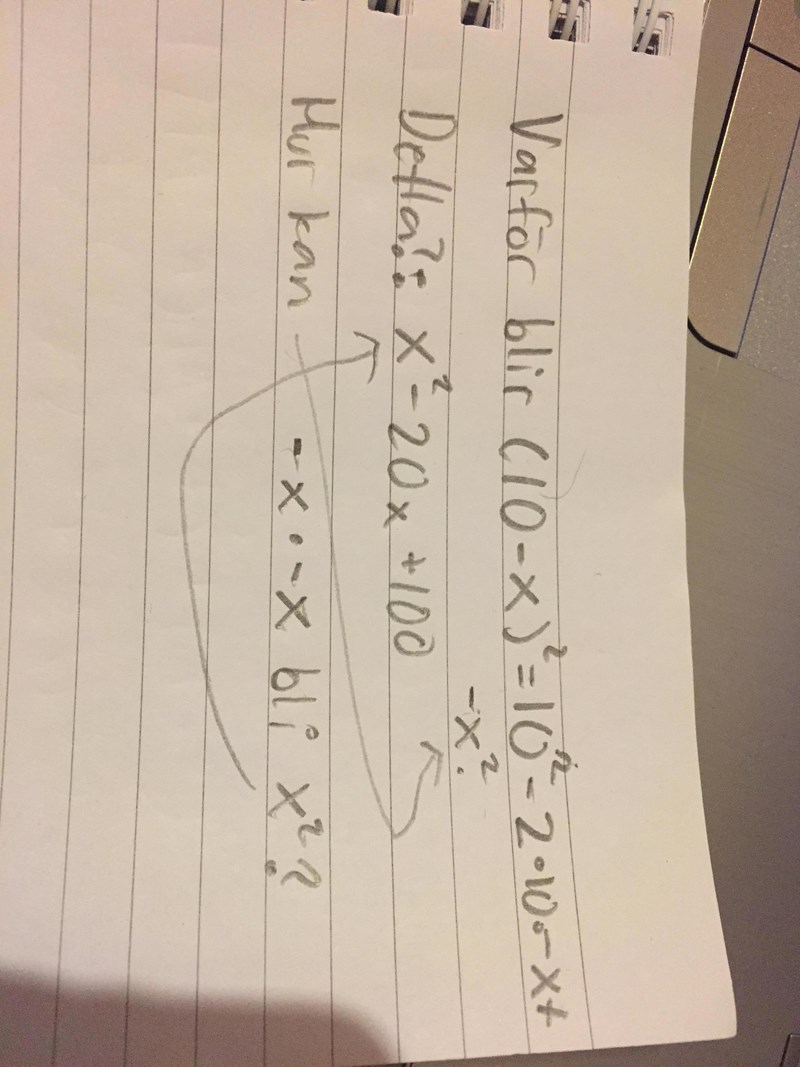 Varför blir (10-x)²=10²-2·10·-x+
-x².
Detta?: x²-20x+100
Hur kan -x·-x bli x²?